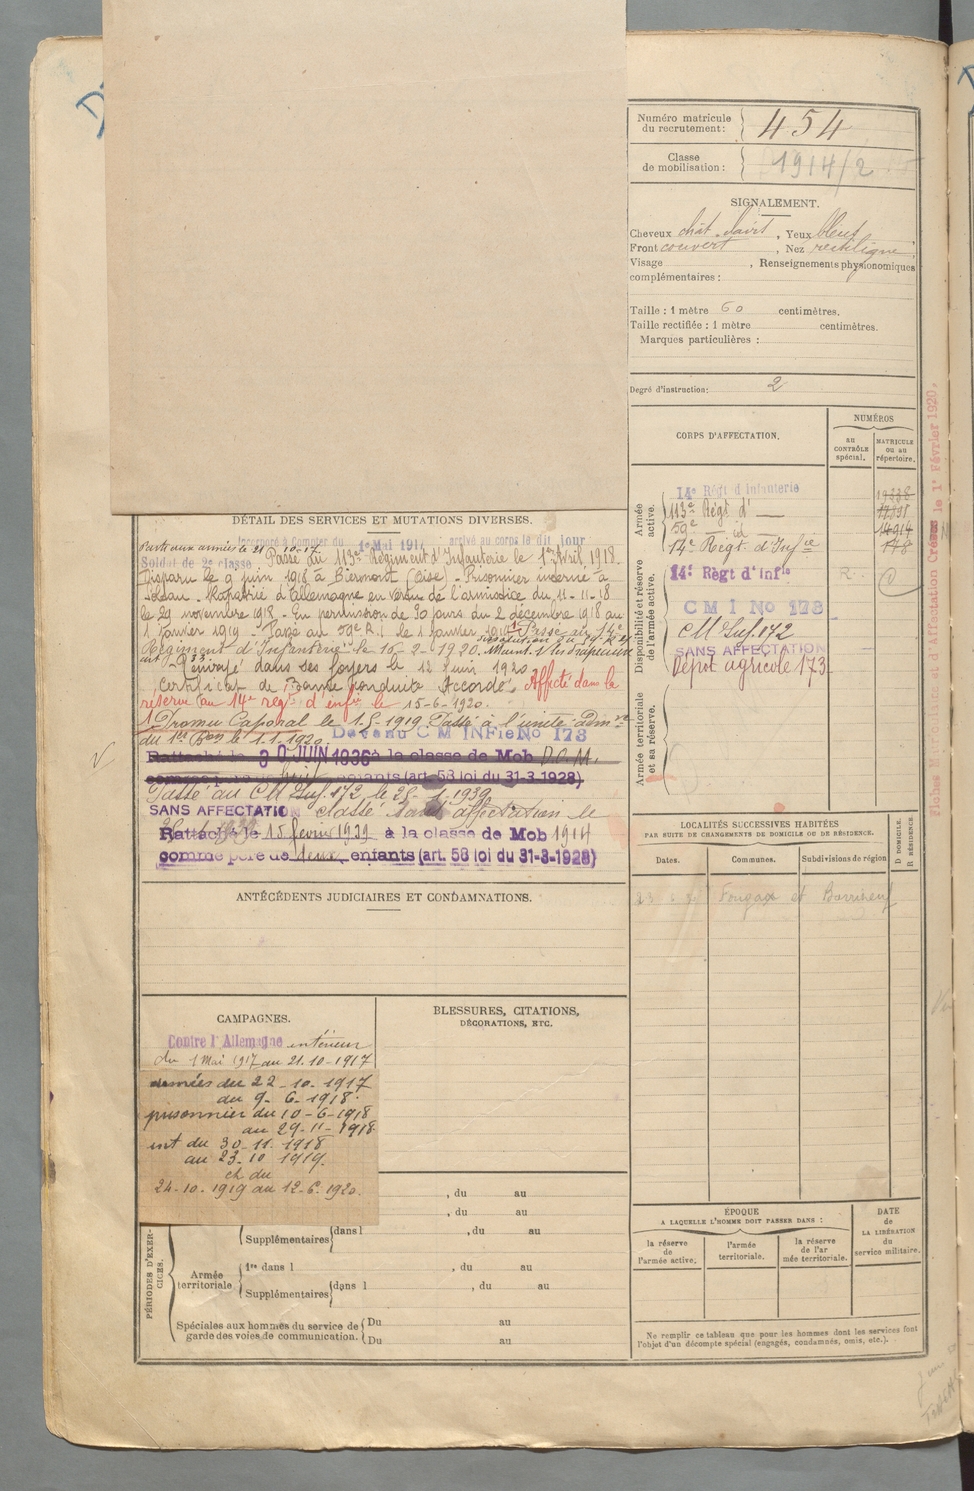 Numéro matricule
du recrutement: 454
Classe
de mobilisation: 1914/2
SIGNALEMENT.
Cheveux chât. clairs, Yeux bleus
Front couvert, Nez rectiligne
Visage , Renseignements physionomiques
complémentaires:
Taille: 1 mètre 60 centimètres.
Taille rectifiée: 1 mètre centimètres.
Marques particulières:
Degré d'instruction: 2
CORPS D'AFFECTATION.
NUMÉROS
AU CONTRÔLE spécial.
MATRICULE OU AU répertoire.
Armée active.
14e Régt d'Infanterie
113e Régt d° —
59e — id —
14e Régt d'Infie 148
Disponibilité et réserve de l'armée active.
14e Règt d'Infie R.
CMI No 173
CM Inf. 172
SANS AFFECTATION
Dépot agricole 173
Armée territoriale et sa réserve.
Fiches Matricules et d'Affectation Créées le 1er Février 1920.
DÉTAIL DES SERVICES ET MUTATIONS DIVERSES.
Incorporé à Compter du 1er Mai 1917 arrivé au corps le dit jour
Parti aux armées le 21-10-17
Soldat de 2e classe Passé au 113e Régiment d'Infanterie le 1er Avril 1918.
Disparu le 9 juin 1918 à Biermont (Oise) - Prisonnier interné à
- Rapatrié d'Allemagne en vertu de l'armistice du 11-11-18
le 29 novembre 1918 - En permission de 30 jours du 2 décembre 1918 au
1 Janvier 1919 - Passé au 59e R.I. le 1 Janvier 1919. Passé au 14e
Régiment d'Infanterie le 16-2-1920. Maint. s/ les drapeaux
Renvoyé dans ses foyers le 12 Juin 1920
Certificat de Bonne Conduite Accordé. Affecté dans la
réserve au 14e régt d'infie le 15-6-1920.
Promu Caporal le 1.5.1919. Passé à l'unité admve
du 1er Bon le 1.1.1920. Devenu CM INFie No 173
Rattaché le 30 JUIN 1936 à la classe de Mob
comme père de enfants (art. 58 loi du 31-3-1928).
Passé au CM Inf. 172 le 25-1-1939
SANS AFFECTATION classé sans affectation le
Rattaché le 15 février 1939 à la classe de Mob 1914
comme père de deux enfants (art. 58 loi du 31-3-1928)
LOCALITÉS SUCCESSIVES HABITÉES
PAR SUITE DE CHANGEMENTS DE DOMICILE OU DE RÉSIDENCE.
Dates. Communes. Subdivisions de région
D DOMICILE.
R RÉSIDENCE.
Fougax et Barrineuf
ANTÉCÉDENTS JUDICIAIRES ET CONDAMNATIONS.
CAMPAGNES.
Contre l'Allemagne intérieur
du 1 Mai 1917 au 21.10-1917
armées du 22-10-1917
du 9-6-1918.
prisonnier du 10-6-1918
au 29-11-1918
int du 30.11.1918
au 23.10 1919.
ch du
24-10.1919 au 12-6.1920.
BLESSURES, CITATIONS,
DÉCORATIONS, ETC.
PÉRIODES D'EXERCICES.
, du au
, du au
Supplémentaires dans l , du au
Armée territoriale
1re dans l , du au
Supplémentaires dans l , du au
Spéciales aux hommes du service de garde des voies de communication.
Du au
Du au
ÉPOQUE
A LAQUELLE L'HOMME DOIT PASSER DANS:
la réserve de l'armée active.
l'armée territoriale.
la réserve de l'armée territoriale.
DATE DE LA LIBÉRATION du service militaire.
Ne remplir ce tableau que pour les hommes dont les services font
l'objet d'un décompte spécial (engagés, condamnés, omis, etc.).